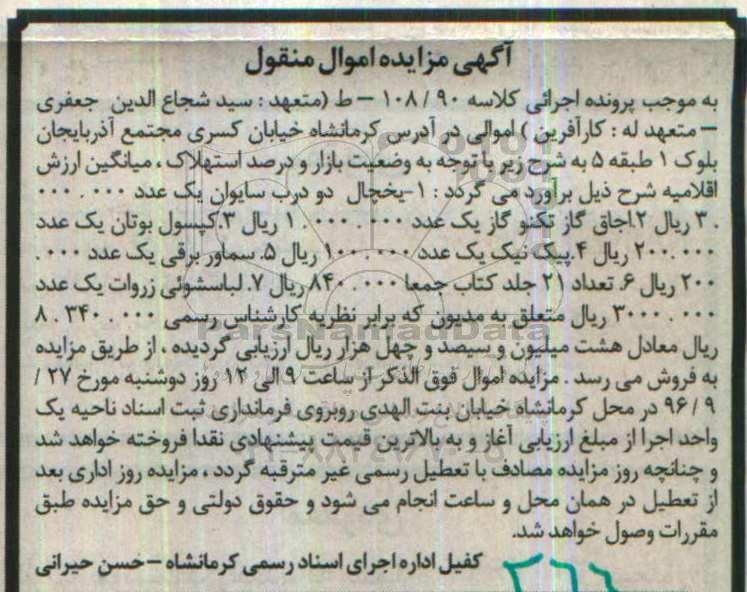 آگهی مزایده اموال منقول
به موجب پرونده اجرائی کلاسه ۹۰ / ۱۰۸ – ط (متعهد : سید شجاع الدین جعفری
– متعهد له : کارآفرین ) اموالی در آدرس کرمانشاه خیابان کسری مجتمع آذربایجان
بلوک ۱ طبقه ۵ به شرح زیر با توجه به وضعیت بازار و درصد استهلاک ، میانگین ارزش
اقلامیه شرح ذیل برآورد می گردد : ۱-یخچال دو درب سایوان یک عدد ۰۰۰ . ۰۰۰
. ۳ ریال ۲.اجاق گاز تکنو گاز یک عدد ۰۰۰ . ۰۰۰ . ۱ ریال ۳.کپسول بوتان یک عدد
۲۰۰.۰۰۰ ریال ۴.پیک نیک یک عدد ۱۰۰.۰۰۰ ریال ۵. سماور برقی یک عدد ۰۰۰ .
۲۰۰ ریال ۶. تعداد ۲۱ جلد کتاب جمعا ۰۰۰ . ۸۴۰ ریال ۷. لباسشوئی زروات یک عدد
۰۰۰ . ۳۰۰۰ ریال متعلق به مدیون که برابر نظریه کارشناس رسمی ۰۰۰ . ۳۴۰ . ۸
ریال معادل هشت میلیون و سیصد و چهل هزار ریال ارزیابی گردیده ، از طریق مزایده
به فروش می رسد . مزایده اموال فوق الذکر از ساعت ۹ الی ۱۲ روز دوشنبه مورخ ۲۷ /
۹ / ۹۶ در محل کرمانشاه خیابان بنت الهدی روبروی فرمانداری ثبت اسناد ناحیه یک
واحد اجرا از مبلغ ارزیابی آغاز و به بالاترین قیمت پیشنهادی نقدا فروخته خواهد شد
و چنانچه روز مزایده مصادف با تعطیل رسمی غیر مترقبه گردد ، مزایده روز اداری بعد
از تعطیل در همان محل و ساعت انجام می شود و حقوق دولتی و حق مزایده طبق
مقررات وصول خواهد شد.
کفیل اداره اجرای اسناد رسمی کرمانشاه – حسن حیرانی
ParsNamadData